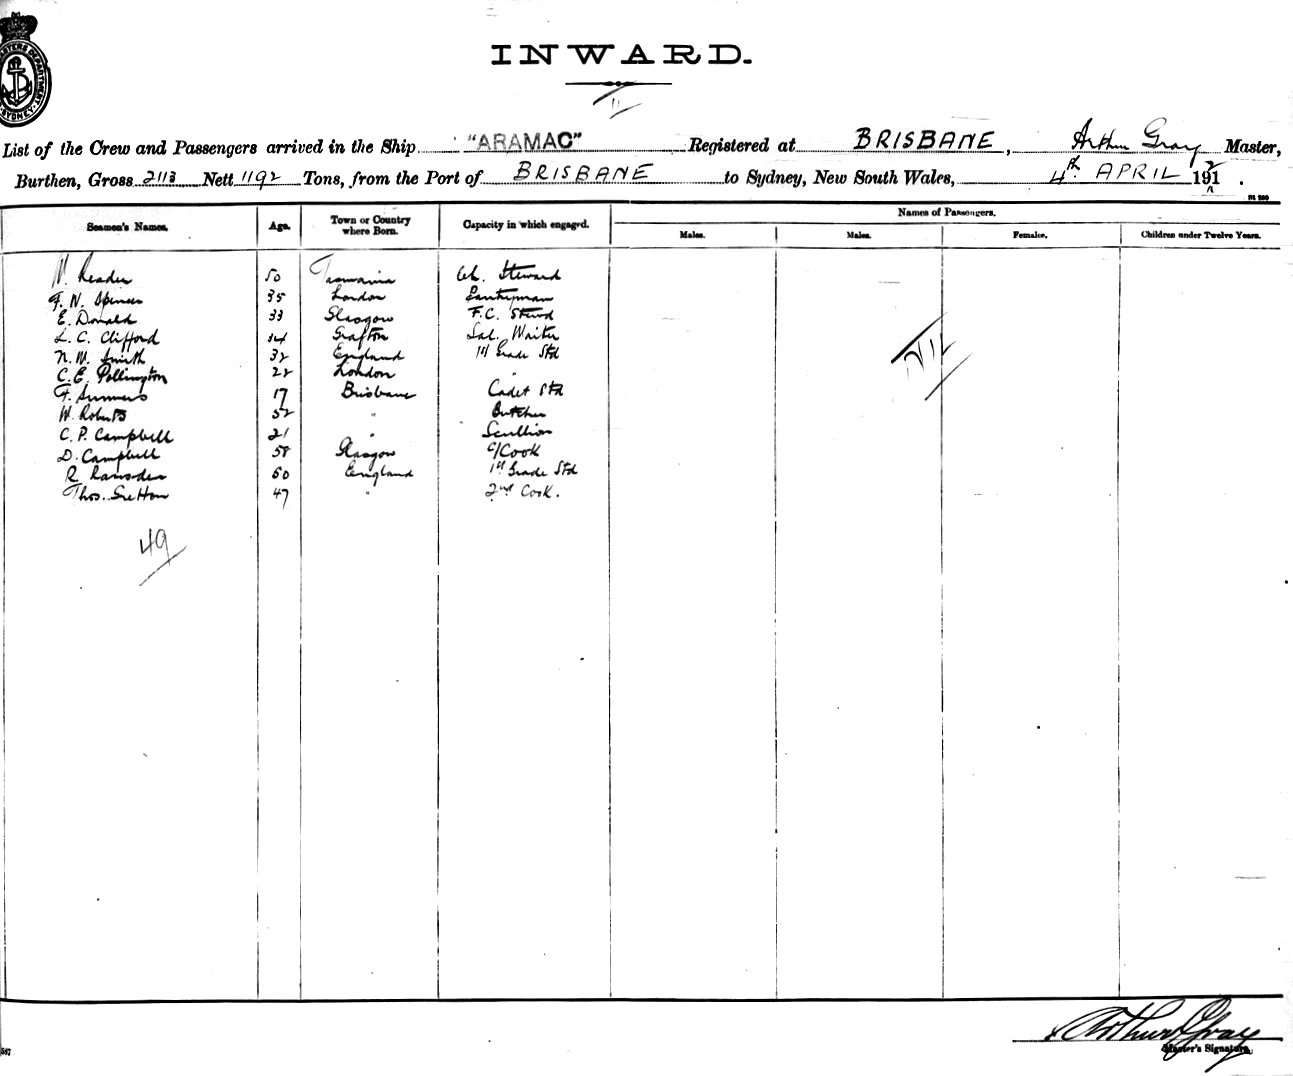 INWARD.
List of the Crew and Passengers arrived in the Ship "ARAMAC" Registered at BRISBANE, Arthur Gray Master,
Burthen, Gross 2113 Nett 1192 Tons, from the Port of BRISBANE to Sydney, New South Wales, 4th APRIL 1912.
Names of Passengers.
Seamen's Names. Age. Town or Country where Born. Capacity in which engaged. Males. Males. Females. Children under Twelve Years.
N. Reader 50 Tasmania Ch. Steward
F. N. Spencer 35 London Pantryman
E. Donald 33 Glasgow F.C. Stewd
L. C. Clifford Grafton Sal. Waiter
N. M. Smith 32 England 1st Grade Std
C. E. Pollington 22 London "
F. Summers 17 Brisbane Cadet Std
W. Roberts 52 " Butcher
C. P. Campbell 21 " Scullion
D. Campbell 58 Glasgow c/Cook
R. Ramsden 50 England 1st Grade Std
Thos. Gretton 47 " 2nd Cook.
NIL
49
Arthur Gray
Master's Signature.